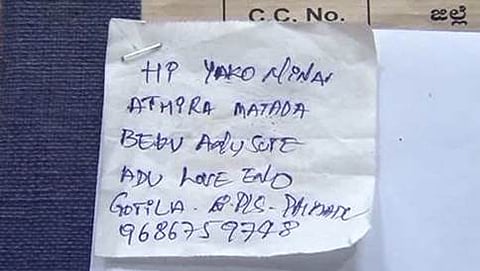 C.C. No. ಜಿಲ್ಲೆ
HP YAKO NINA
ATHIRA MATADA
BEKU ADU
ADU LOVE ENO
GOTILA. PLS-
9686759748